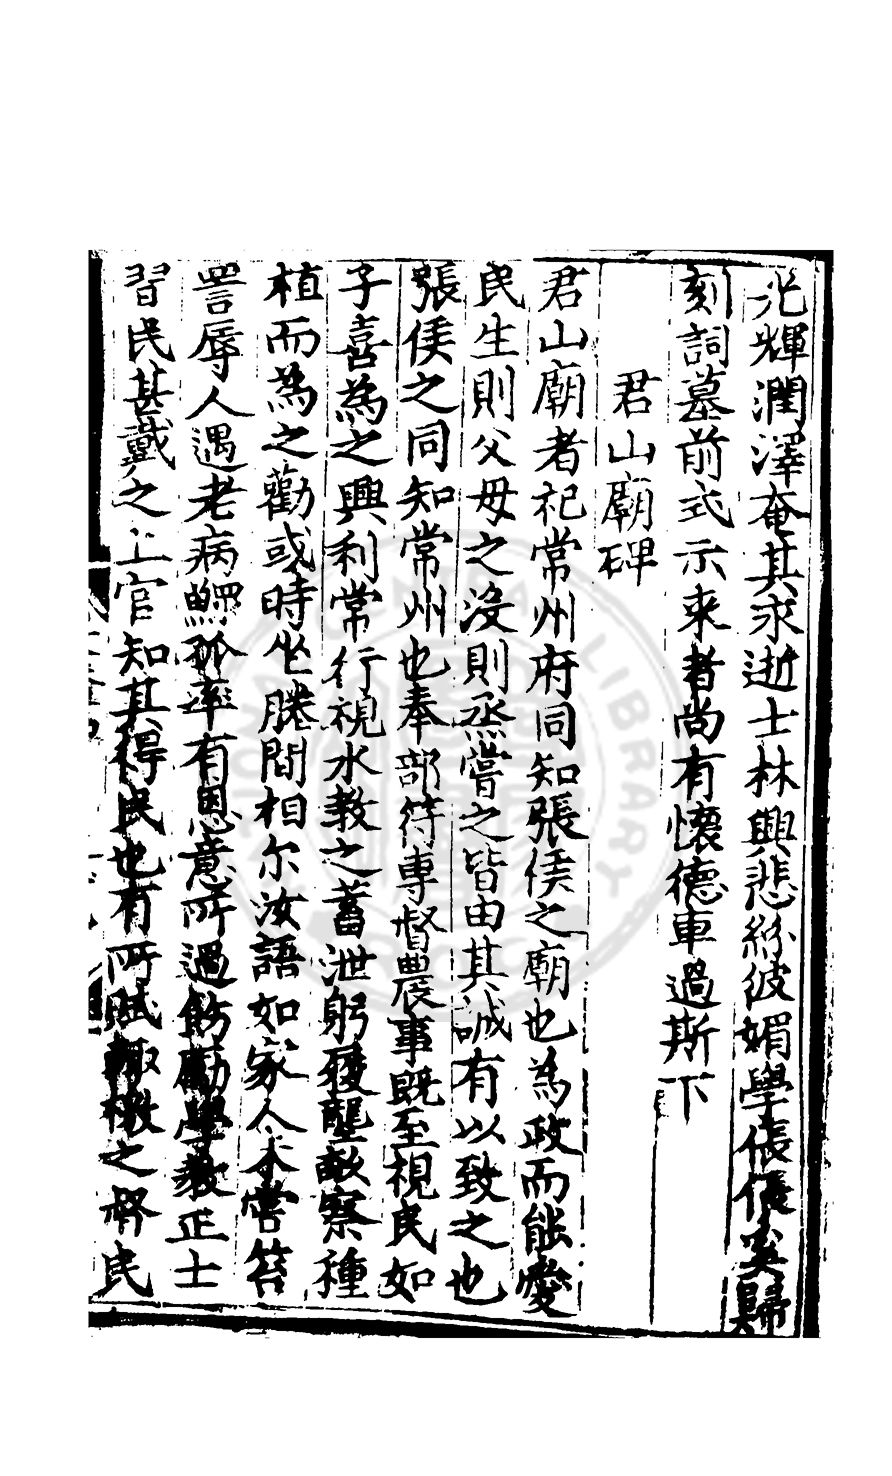 光輝潤澤奄其求逝士林興悲絲彼媚學倀倀奚歸
刻詞墓前式示来者尚有懷德車過斯下
君山廟碑
君山廟者祀常州府同知張侯之廟也為政而能愛
民生則父母之沒則烝嘗之皆由其誠有以致之也
張侯之同知常州也奉部符專督農事既至視民如
子喜為之興利常行視水教之蓄泄躬履壟畝察種
植而為之勸或時坐塍間相尔汝語如家人未嘗笞
詈辱人遇老病鰥孤率有恩意所過飭勵學教正士
習民甚戴之上官知其得民也有所賦輙檄之督民
LIBRARY